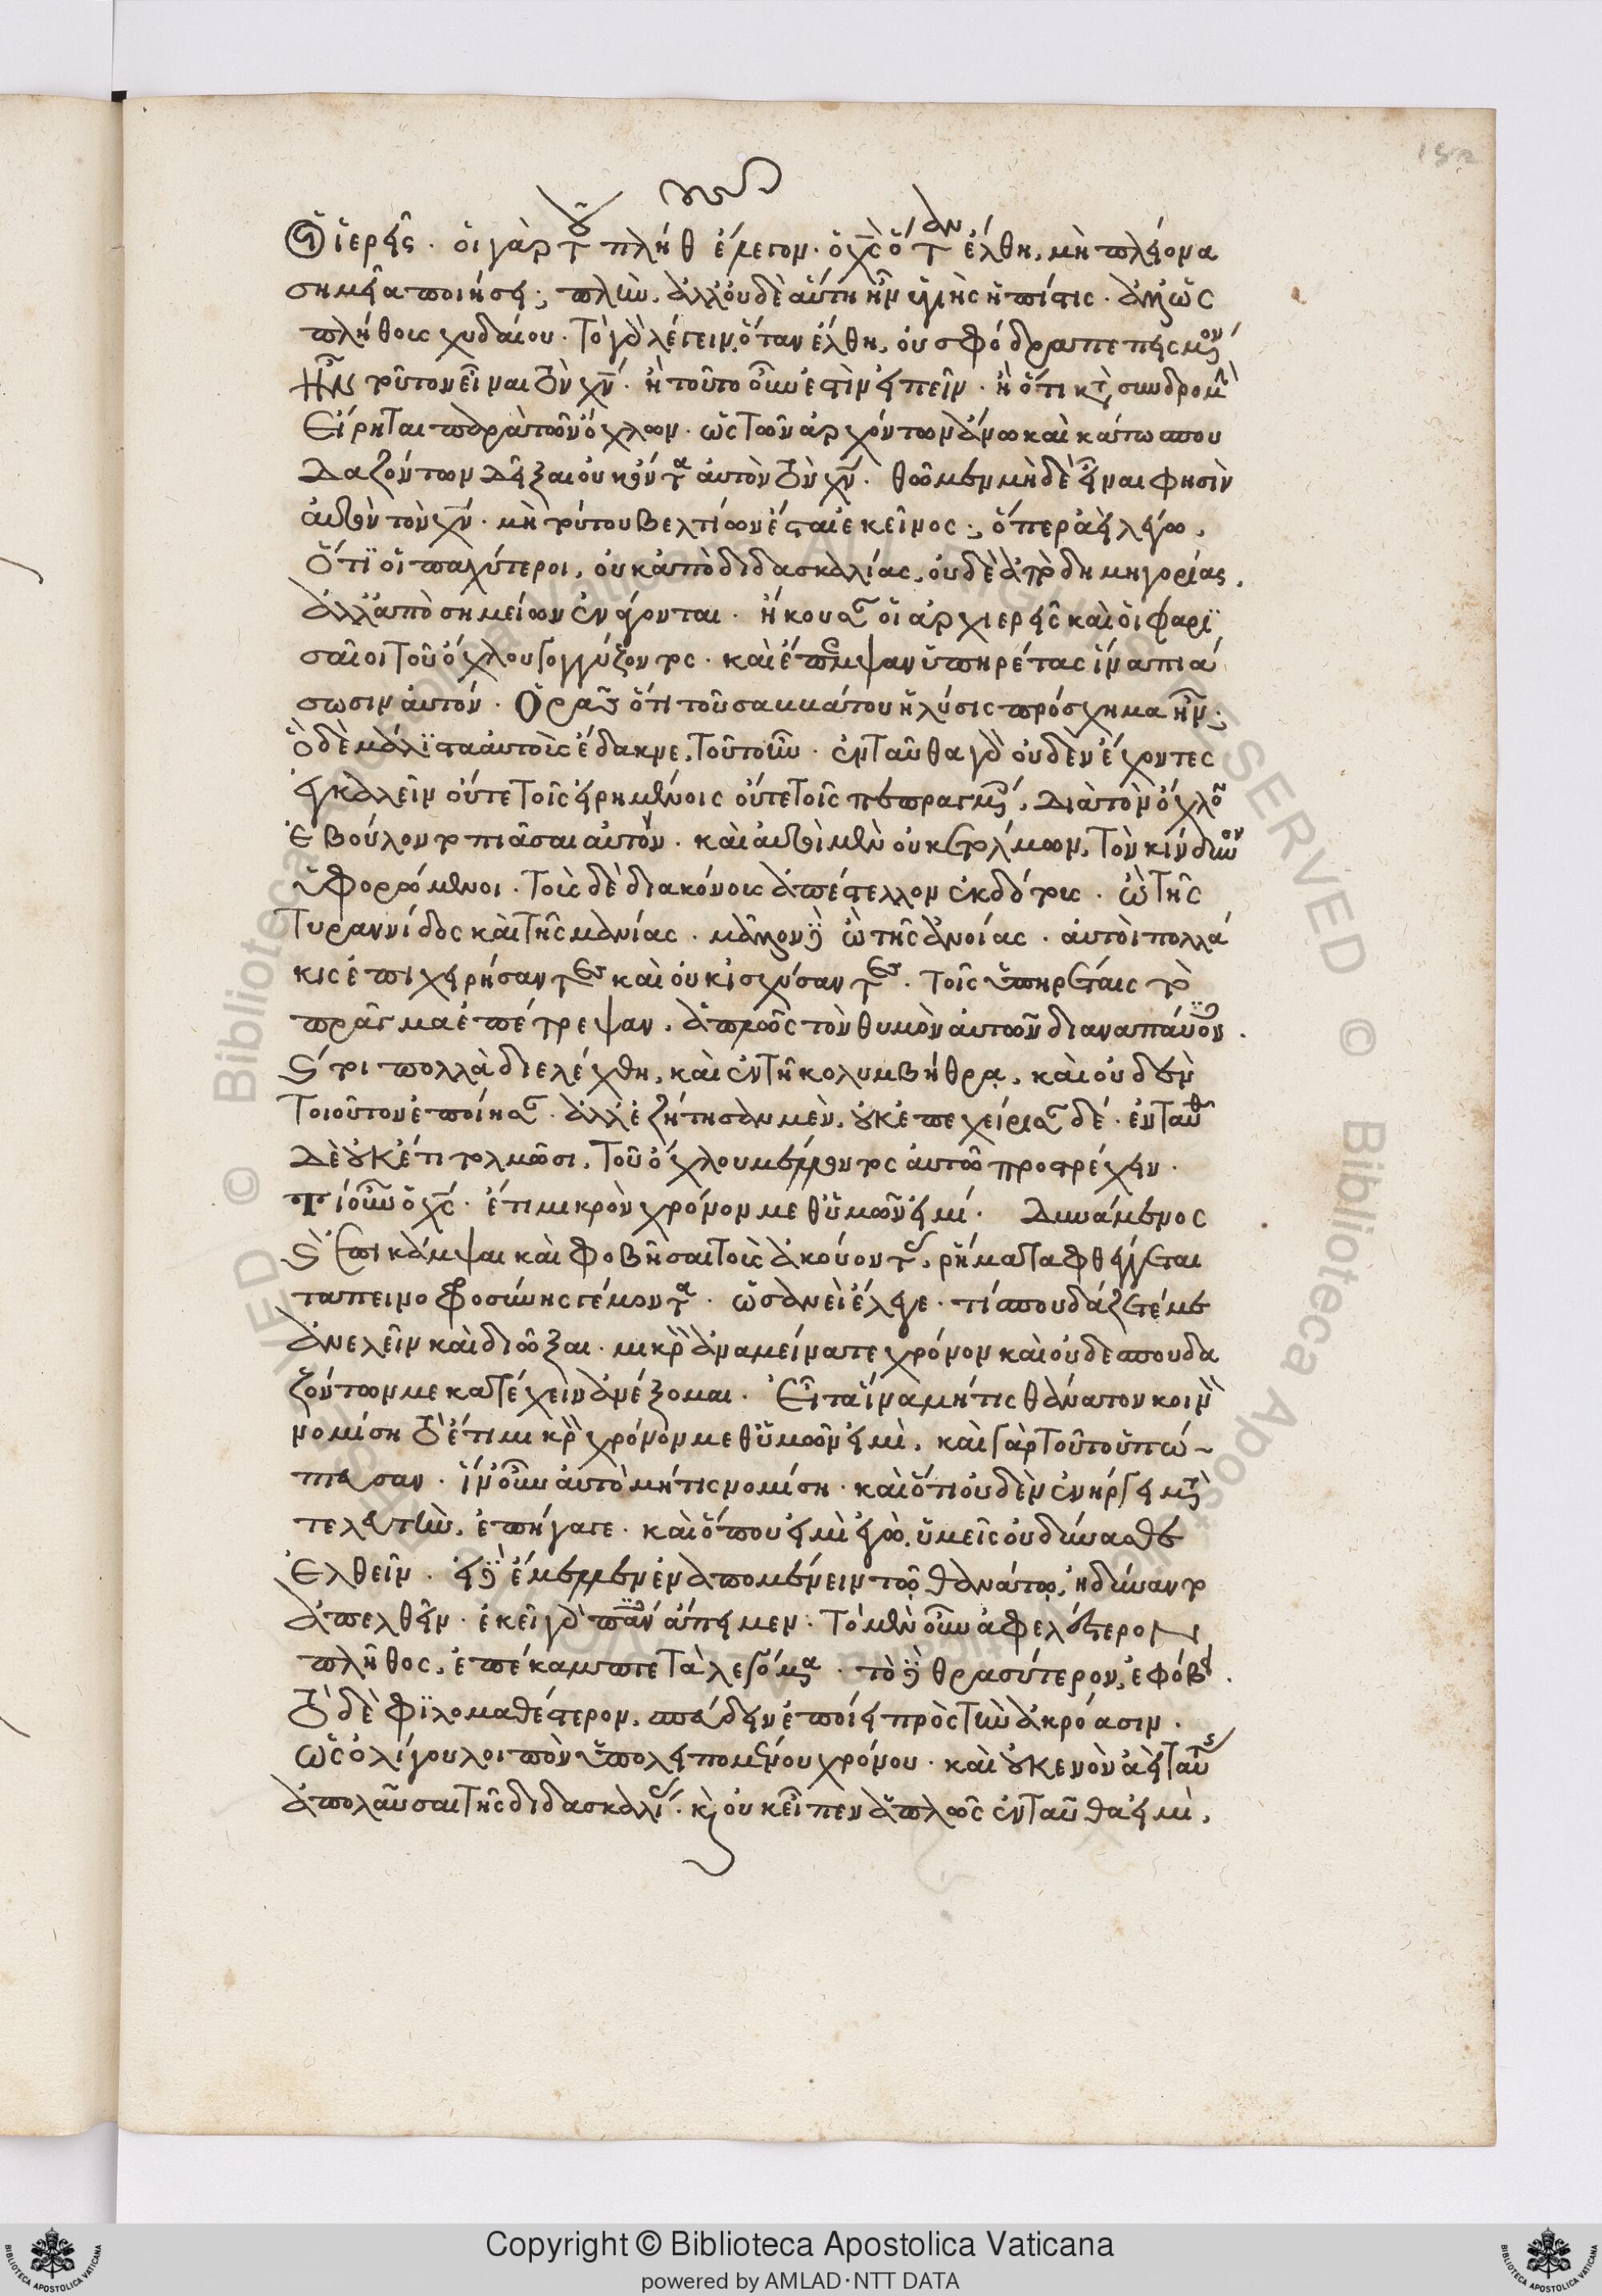 οἱ ἱερεῖς. οἱ γὰρ τοῦ πλήθους ἔλεγον. ὁ χς ὅταν ἔλθη, μὴ πλείονα
σημεῖα ποιήσει; πλὴν ἀλλ' οὐδὲ αὕτη ἦν ὑγιὴς ἡ πίστις. ἀλλ' ὡς
πλήθους χυδαίου. τὸ γὰρ λέγειν, ὅταν ἔλθη, οὐ σφόδρα πεπεισμένων
ἦν τοῦτον εἶναι τὸν χν. ἢ τοῦτο οὖν ἐστὶν εἰπεῖν. ἢ ὅτι κατὰ συνδρομὴν
εἴρηται παρὰ τῶν ὄχλων. ὡς τῶν ἀρχόντων ἄνω καὶ κάτω σπου
δαζόντων δεῖξαι οὐκ ὄντα αὐτὸν τὸν χν. θῶμεν μὴ δὲ εἶναι φησὶν
αὐτὸν τὸν χν. μὴ τούτου βελτίων ἔσται ἐκεῖνος; ὅπερ ἀεὶ λέγω,
ὅτι οἱ παχύτεροι, οὐκ ἀπὸ διδασκαλίας, οὐδὲ ἀπὸ δημηγορίας,
ἀλλ' ἀπὸ σημείων ἐνάγονται. ἤκουσαν οἱ ἀρχιερεῖς καὶ οἱ φαρι
σαῖοι τοῦ ὄχλου γογγύζοντος. καὶ ἔπεμψαν ὑπηρέτας ἵνα πιά
σωσιν αὐτόν. ὁρᾶς ὅτι τοῦ σαββάτου ἡ λύσις πρόσχημα ἦν;
ὃ δὲ μάλιστα αὐτοὺς ἔδακνε, τοῦτο ἦν. ἐνταῦθα γὰρ οὐδὲν ἔχοντες
ἐγκαλεῖν οὔτε τοῖς εἰρημένοις οὔτε τοῖς πεπραγμένοις, διὰ τὸν ὄχλον
ἐβούλοντο πιάσαι αὐτόν. καὶ αὐτοὶ μὲν οὐκ ἐτόλμων, τὸν κίνδυνον
ὑφορώμενοι. τοὺς δὲ διακόνους ἀπέστελλον ἐκδότους. ὢ τῆς
τυραννίδος καὶ τῆς μανίας. μᾶλλον δὲ ὢ τῆς ἀνοίας. αὐτοὶ πολλά
κις ἐπιχειρήσαντες καὶ οὐκ ἰσχύσαντες. τοῖς ὑπηρέταις τὸ
πρᾶγμα ἐπέτρεψαν, ἁπλῶς τὸν θυμὸν αὐτῶν διαναπαύοντες.
ἔτι πολλὰ διελέχθη, καὶ ἐν τῆ κολυμβήθρα, καὶ οὐδὲν
τοιοῦτον ἐποίησαν. ἀλλ' ἐζήτησαν μὲν, οὐκ ἐπεχείρισαν δέ. ἐνταῦθα
δὲ οὐκέτι τολμῶσι, τοῦ ὄχλου μέλλοντος αὐτῶ προστρέχειν.
τί οὖν ὁ χς. ἔτι μικρὸν χρόνον μεθ' ὑμῶν εἰμί. δυνάμενος
δὲ ἐπικάμψαι καὶ φοβῆσαι τοὺς ἀκούοντας, ῥήματα φθέγγεται
ταπεινοφροσύνης γέμοντα. ὡσανεὶ ἔλεγε. τί σπουδάζετέ με
ἀνελεῖν καὶ διῶξαι. μικρὸν ἀναμείνατε χρόνον καὶ οὐδὲ σπουδα
ζόντων με κατέχειν ἀνέξομαι. εἶτα ἵνα μή τις θάνατον κοινὸν
νομίση τὸ ἔτι μικρὸν χρόνον μεθ' ὑμῶν εἰμὶ, καὶ γὰρ τοῦτο ὑπώ-
πτευσαν. ἵν' οὖν αὐτὸ μή τις νομίση. καὶ ὅτι οὐδὲν ἐνήργει μετὰ
τελευτὴν, ἐπήγαγε. καὶ ὅπου εἰμὶ ἐγὼ, ὑμεῖς οὐ δύνασθε
ἐλθεῖν. εἰ δὲ ἔμελλεν ἐναπομένειν τῶ θανάτω, ἠδύναντο
ἀπελθεῖν. ἐκεῖ γὰρ πάντες ἄπιμεν. τὸ μὲν οὖν ἀφελέστερον
πλῆθος, ἐπέκαμπτε τὰ λεγόμενα. τὸ δὲ θρασύτερον, ἐφόβει.
τὸ δὲ φιλομαθέστερον, σπεύδειν ἐποίει πρὸς τὴν ἀκρόασιν.
ὡς ὀλίγου λοιπὸν ὑπολειπομένου χρόνου. καὶ οὐκ ἐνὸν ἀεὶ ταύτης
ἀπολαῦσαι τῆς διδασκαλίας. καὶ οὐκ εἶπεν ἁπλῶς ἐνταῦθα εἰμὶ,